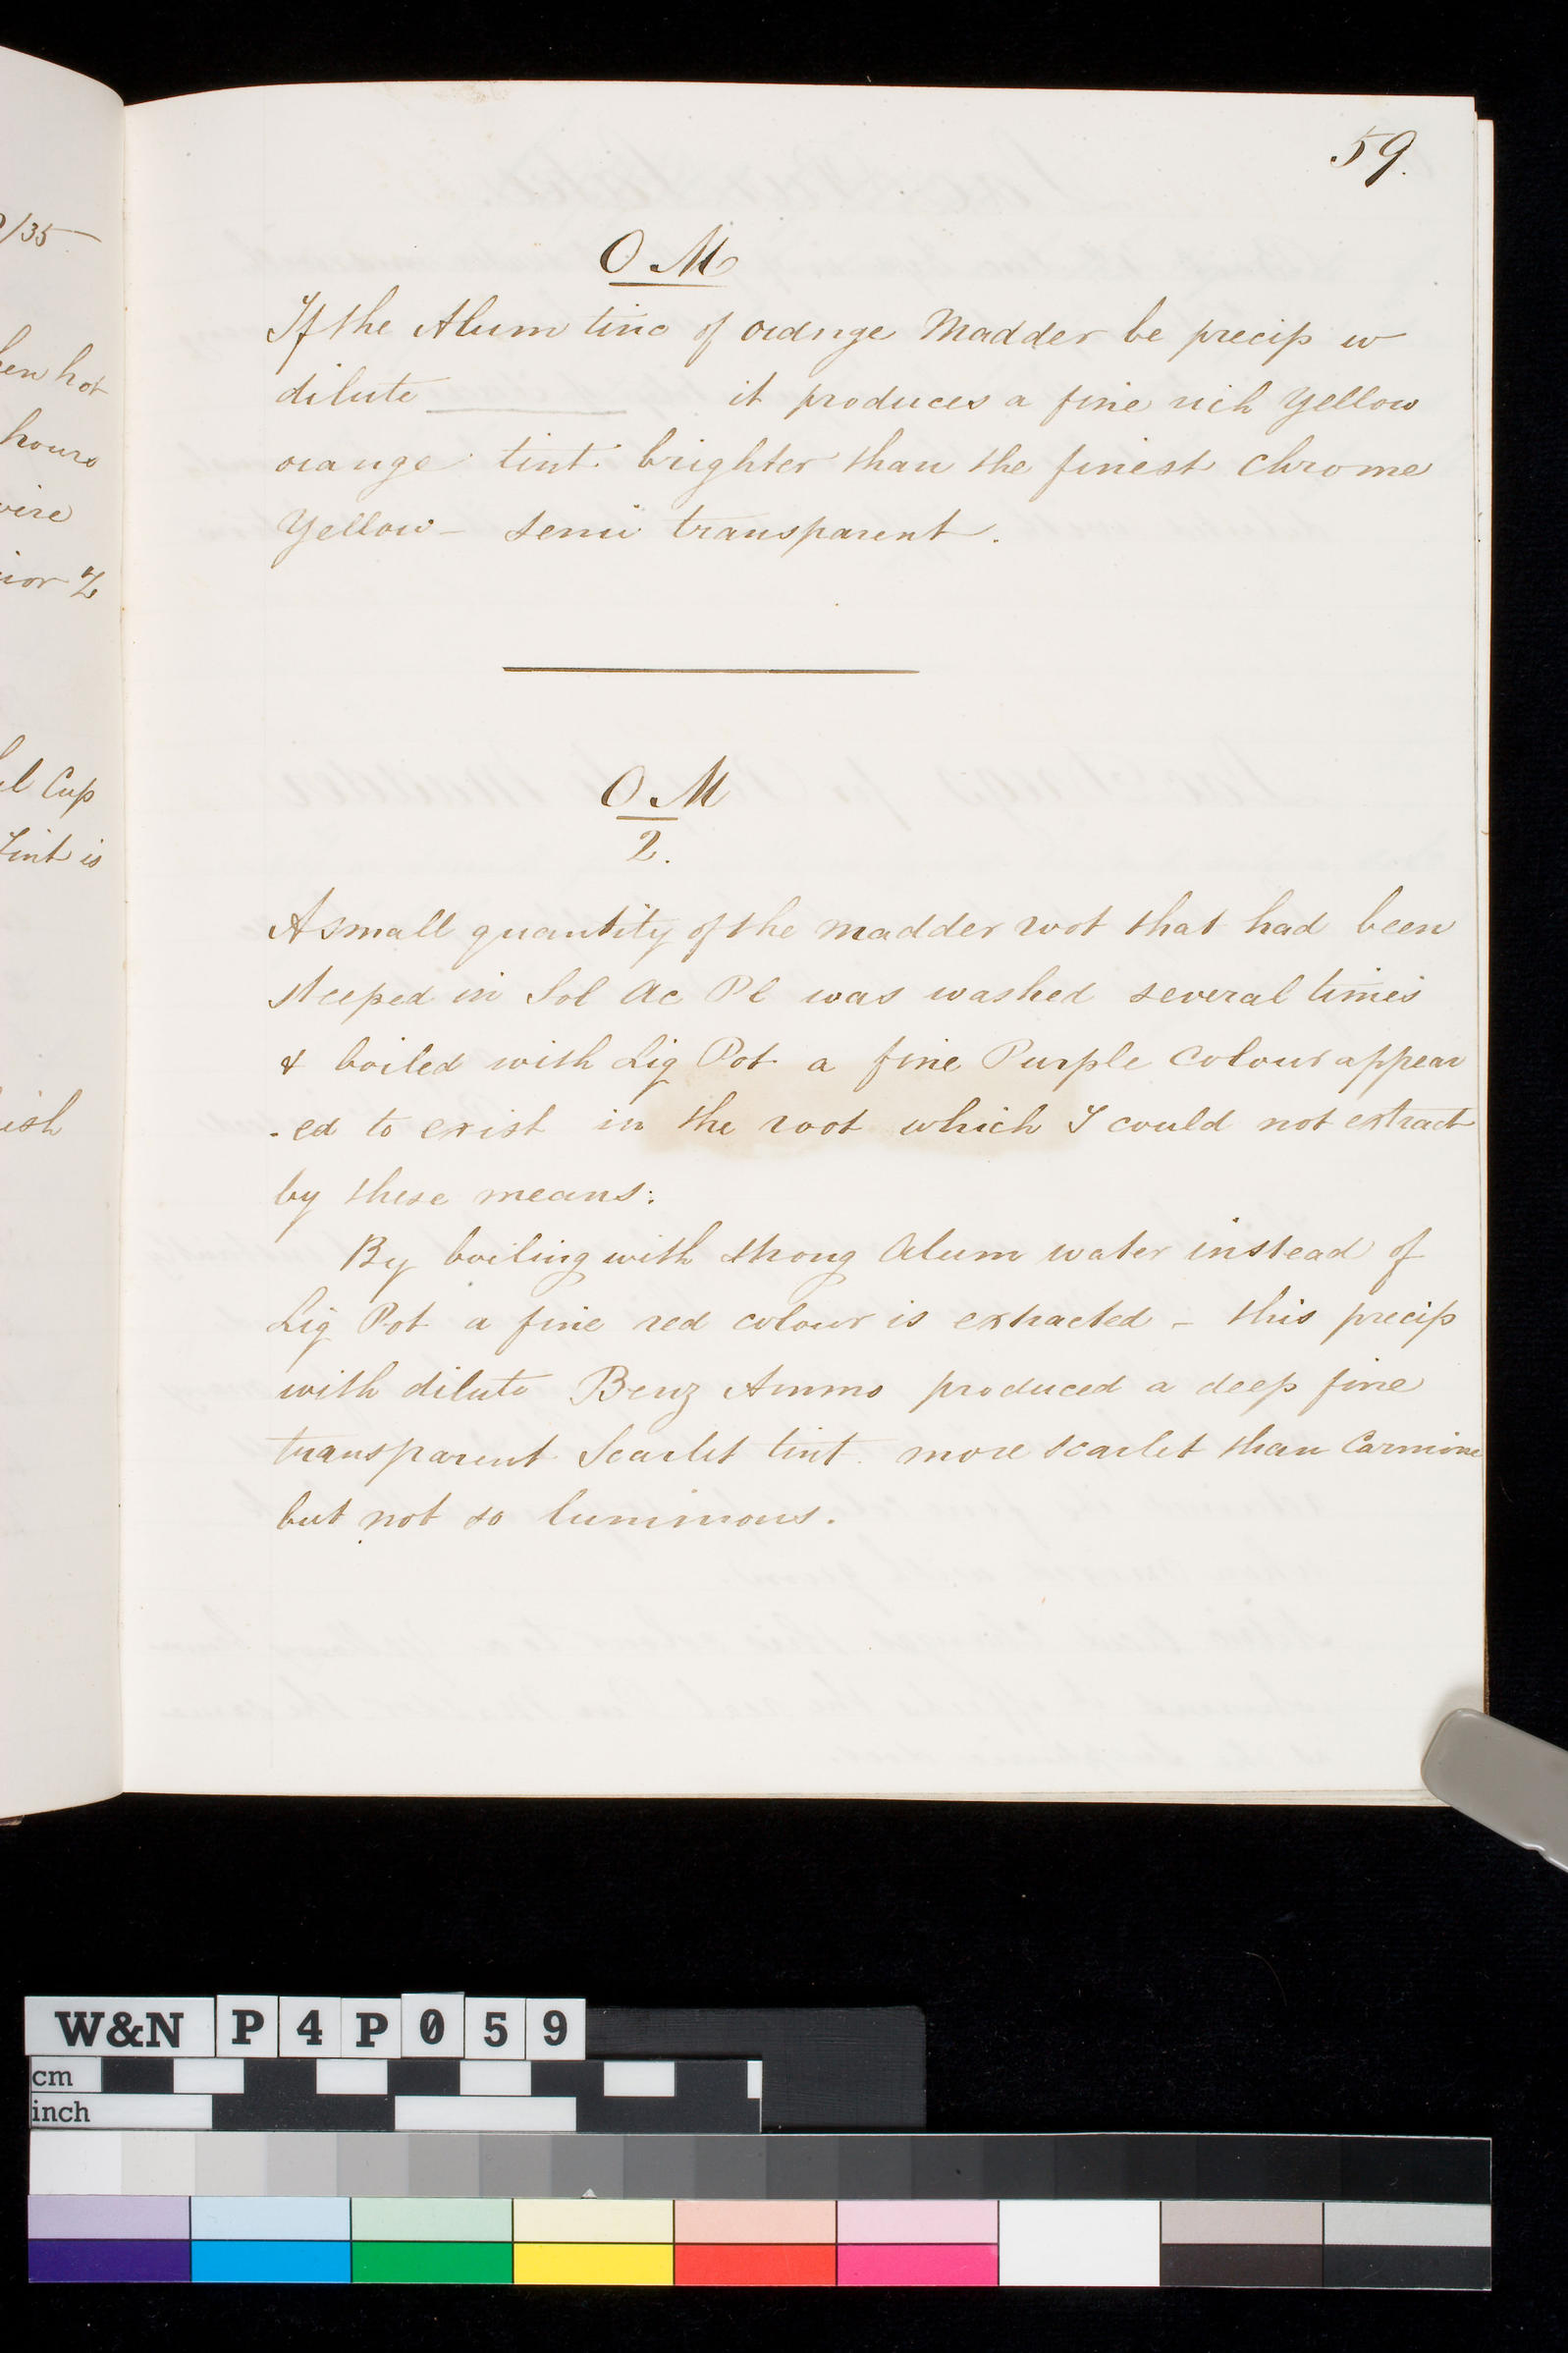 59.
O.M
If the Alum tinc of orange Madder be precip w
dilute ________ it produces a fine rich yellow
orange tint brighter than the finest chrome
Yellow - semi transparent.
O.M
2.
A small quantity of the madder root that had been
steeped in Sol Ac Pl was washed several times
& boiled with Liq Pot a fine Purple colour appear
-ed to exist in the root which I could not extract
by these means.
By boiling with strong Alum water instead of
Liq Pot a fine red colour is extracted - this precip
with dilute Benz Ammo produced a deep fine
transparent Scarlet tint. more scarlet than Carmine
but not so luminous.
/35
hen hot
hours
wire
ior
l Cup
Tint is
ish
W&N P4P059
cm
inch